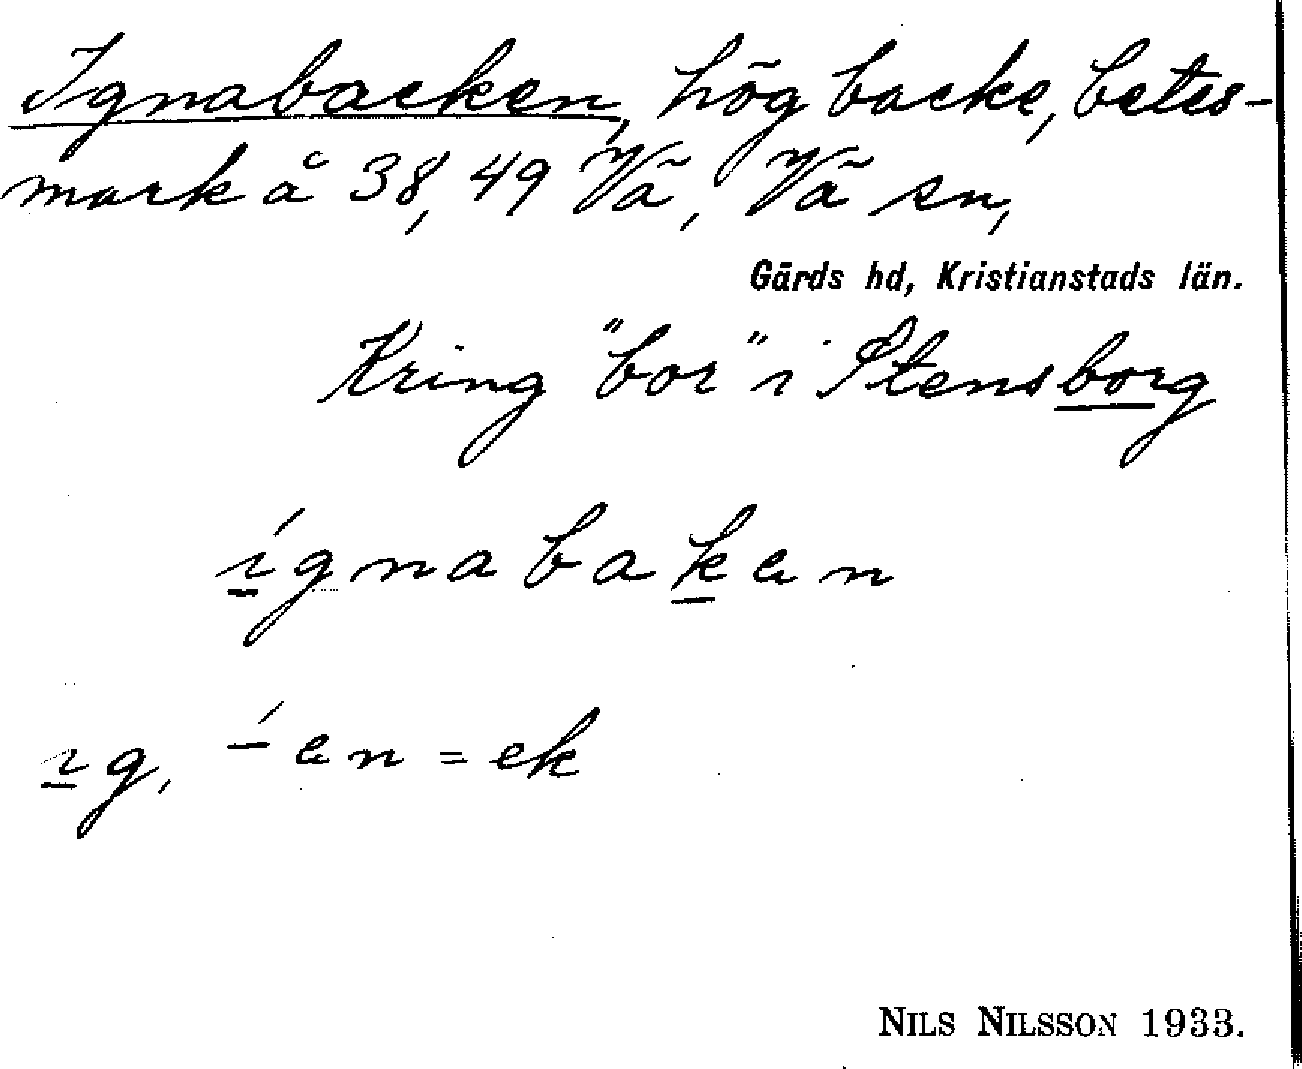 Ignabacken, hög backe, betes-
mark å 38, 49 Vä, Vä sn,
Gärds hd, Kristianstads län.
Kring "bor" i Stensborg
í̱gnabaḵen
i̱g, –́en = ek
NILS NILSSON 1933.